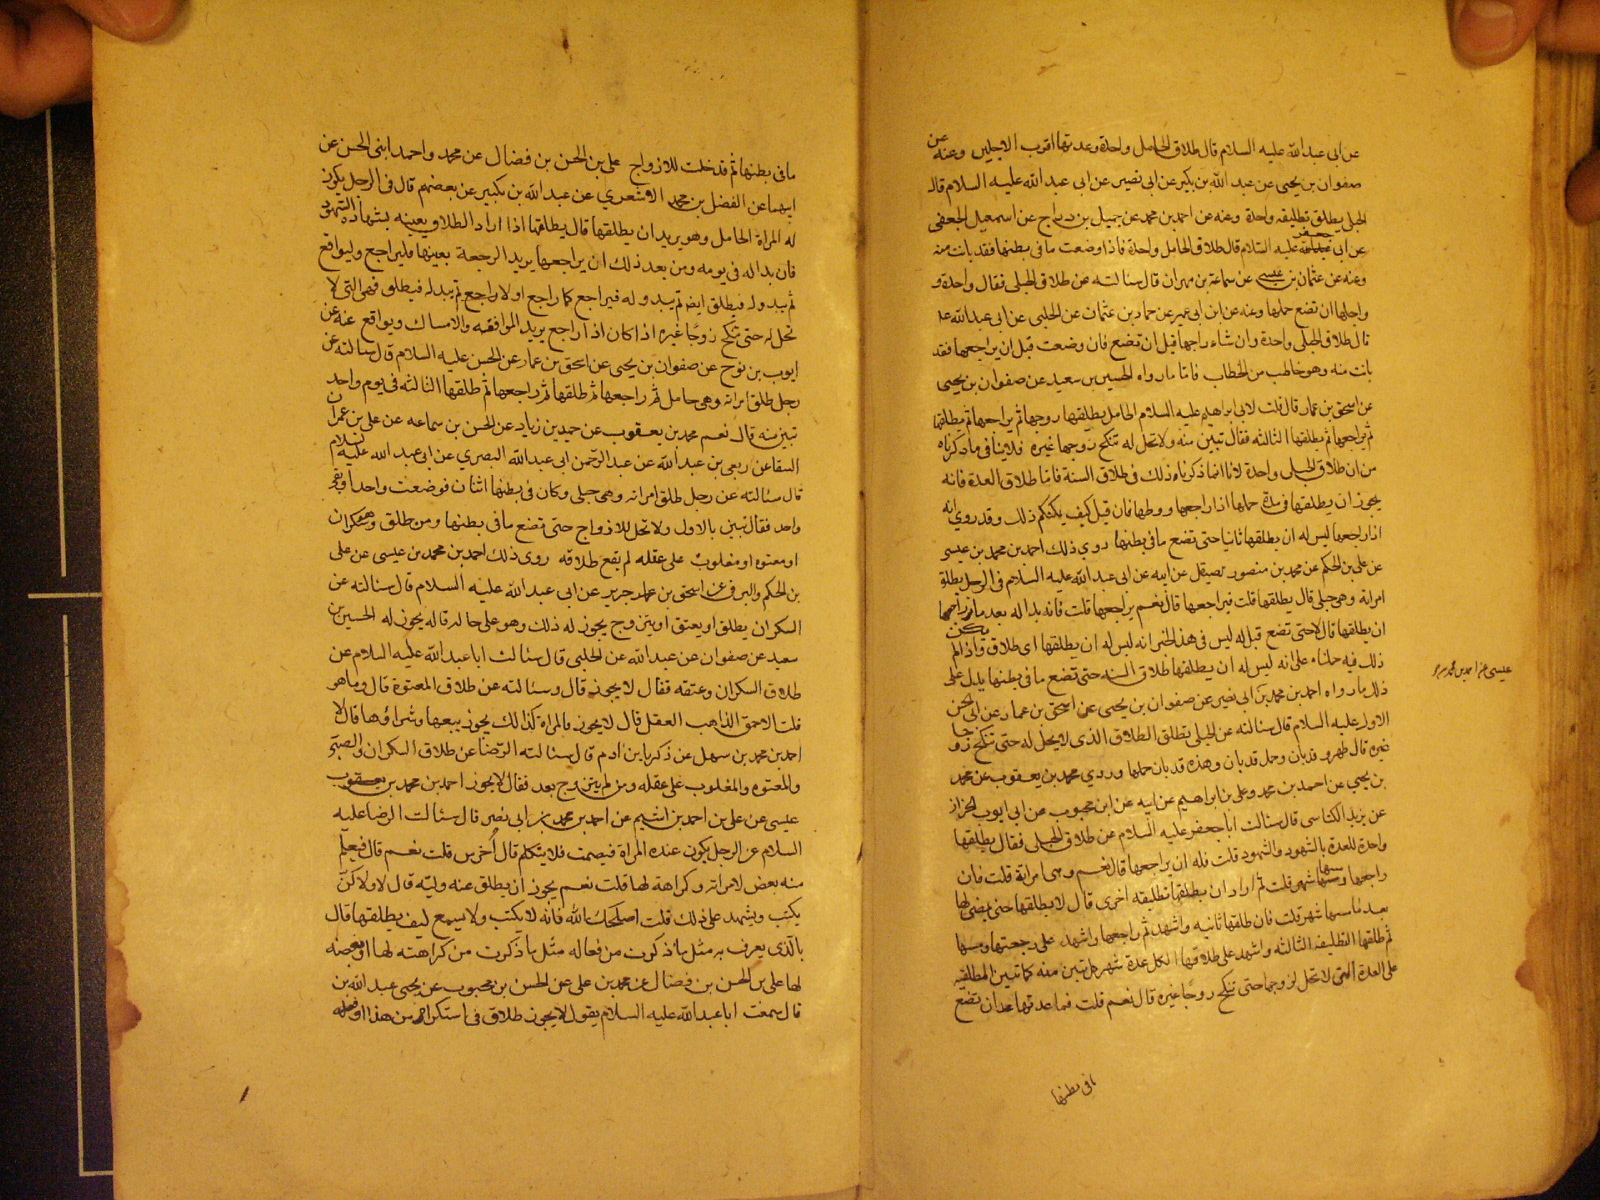 عن ابى عبد الله عليه السلام قال طلاق الحامل واحدة وعدتها اقرب الاجلين وعنه عن
صفوان بن يحيى عن عبد الله بن بكير عن ابى بصير عن ابى عبد الله عليه السلام قال
الحبلى يطلق تطليقه واحدة وعنه عن احمد بن محمد عن جميل بن دراج عن اسمعيل الجعفى
عن ابى جعفر عليه السلام قال طلاق الحامل واحدة فاذا وضعت ما فى بطنها فقد بانت منه
وعنه عن عثمان بن عيسى عن سماعة بن مهران قال سئالته عن طلاق الحبلى فقال واحدة و
واجلها ان تضع حملها وعنه عن ابن ابى عمير عن حماد بن عثمان عن الحلبى عن ابى عبد الله
قال طلاق الحبلى واحدة وان شاء راجعها قبل ان تضع فان وضعت قبل ان يراجعها فقد
بانت منه وهو خاطب من الخطاب فاما ما رواه الحسين بن سعيد عن صفوان بن يحيى
عن اسحق بن عمار قال قلت لابى ابراهيم عليه السلام الحامل يطلقها زوجها ثم يراجعها ثم يطلقها
ثم يراجعها ثم يطلقها الثالثه فقال تبين منه ولا تحل له تنكح زوجها غيره فلا ينافى ما ذكرناه
من ان طلاق الحبلى واحدة لانا انما ذكرنا ذلك فى طلاق السنة فاما طلاق العدة فانه
يجوز ان يطلقها فى مدة حملها اذا راجعها ووطها فان قيل كيف يمكنكم ذلك وقد روى انه
اذا راجعها ليس له ان يطلقها ثانيا حتى تضع ما فى بطنها روي ذلك احمد بن محمد بن عيسى
عن على بن الحكم عن محمد بن منصور لصيقل عن ابيه عن ابى عبد الله عليه السلام فى الرجل يطلق
امراته وهى حبلى قال يطلقها قلت فيراجعها قال نعم يراجعها قلت فانه بدا له بعد ما راجعها
ان يطلقها قال لا حتى تضع قيل له ليس فى هذا الخبر انه ليس له ان يطلقها اى طلاق واذا لم يكن
ذلك فيه حملناه على انه ليس له ان يطلقها طلاق السنه حتى تضع ما فى بطنها يدل على
ذلك ما رواه احمد بن محمد بن ابى نصير عن صفوان بن يحيى عن اسحق بن عمار عن ابى الحسن
الاول عليه السلام قال سئالته عن الحبلى تطلق الطلاق الذى لا يحل له حتى تنكح زوجا
غيره قال طهر وقد بان وحمل قد بان وهذه قد بان حملها وروى محمد بن يعقوب عن محمد
بن يحيى عن احمد بن محمد وعلى بن ابراهيم عن ابيه عن ابن محبوب عن ابى ايوب الخزاز
عن يزيد الكناسى قال سئالت ابا جعفر عليه السلام عن طلاق الحبلى فقال يطلقها
واحدة للعدة بالشهود والشهود قلت فله ان يراجعها قال نعم وهى امراته قلت فان
راجعها ومسها شهر قلت ثم اراد ان يطلقها تطليقه اخرى قال لا يطلقها حتى يمضى لها
بعد ما مسها شهر قلت فان طلقها ثانيه واشهد ثم راجعها واشهد على رجعتها ومسها
ثم طلقها التطليقه الثالثه واشهد على طلاقها لكل عدة شهر هل تبين منه كما تبين المطلقه
على العدة التى لا تحل لزوجها حتى تنكح زوجا غيره قال نعم قلت فما عدتها عدان تضع
عيسى عن احمد بن محمد
ما فى بطنها
ما فى بطنها ثم قد حلت للازواج على بن الحسن بن فضال عن محمد واحمد ابنى الحسن عن
ابيهما عن الفضل بن محمد الاشعري عن عبد الله بن بكير عن بعضهم قال فى الرجل يكون
له المراة الحامل وهو يريد ان يطلقها قال يطلقها اذا اراد الطلاق بعينه بشهادة الشهود
فان بدا له فى يومه ومن بعد ذلك ان يراجعها يريد الرجعة بعينها فليراجع وليواقع
ثم يبدو له فيطلق ايضا ثم يبدو له فيراجع كما راجع اولا راجع ثم يبدو له فيطلق فهى التى لا
تحل له حتى تنكح زوجا غيره اذا كان اذا راجع يريد الموافقه والامساك ويواقع عنه عن
ايوب بن نوح عن صفوان بن يحيى عن اسحق بن عمار عن الحسن عليه السلام قال سئالته عن
رجل طلق امراته وهى حامل ثم راجعها ثم طلقها ثم راجعها ثم طلقها الثالثه فى يوم واحد
تبين منه قال نعم محمد بن يعقوب عن حميد بن زياد عن الحسن بن سماعه عن على بن عمران
السقا عن ربعى بن عبد الله عن عبد الرحمن ابى عبد الله البصري عن ابى عبد الله عليه السلام
قال سئالته عن رجل طلق امراته وهى حبلى وكان فى بطنها اثنان فوضعت واحدا وبقى
واحد فقال تبين بالاول ولا تحل للازواج حتى تضع ما فى بطنها ومن طلق وهو سكران
او معتوه او مغلوب على عقله لم يقع طلاقه روى ذلك احمد بن محمد بن عيسى عن على
بن الحكم والبرقى عن اسحق بن عمار جرير عن ابى عبد الله عليه السلام قال سئالته عن
السكران يطلق او يعتق او يتزوج يجوز له ذلك وهو على حاله قال لا يجوز له الحسين بن
سعيد عن صفوان عن عبد الله عن الحلبى قال سئالت ابا عبد الله عليه السلام عن
طلاق السكران وعتقه فقال لا يجوز قال وسئالته عن طلاق المعتوة قال وما هو
قلت الاحمق الذاهب العقل قال لا يجوز فالمراة كذالك يجوز بيعها وشراؤها قال لا
احمد بن محمد بن سهل عن زكريا بن ادم قال سئالته الرضا عن طلاق السكران والصبى
والمعتوه والمغلوب على عقله ومن لم يتزوج بعد فقال لا يجوز احمد بن محمد بن يعقوب
عيسى عن على بن احمد بن اشيم عن احمد بن محمد بن ابى نصر قال سئالت الرضا عليه
السلام عن الرجل يكون عنده المراة فيصمت فلا يتكلم قال أخرس قلت نعم قال فيعلم
منه بعض لامراته وكراهة لها قلت نعم يجوز ان يطلق عنه وليه قال لا ولا كن
يكتب ويشهد على ذلك قلت اصلحك الله فانه لا يكتب ولا يسمع كيف يطلقها قال
بالذى يعرف به مثل ما ذكرت من فعاله مثل ما ذكرت من كراهته لها او بعضه
لها على بن الحسن بن فضال عن محمد بن على عن الحسن بن محبوب عن يحيى عبد الله بن
قال سمعت ابا عبد الله عليه السلام يقول لا يجوز طلاق فى استكراه من هذا او فعله